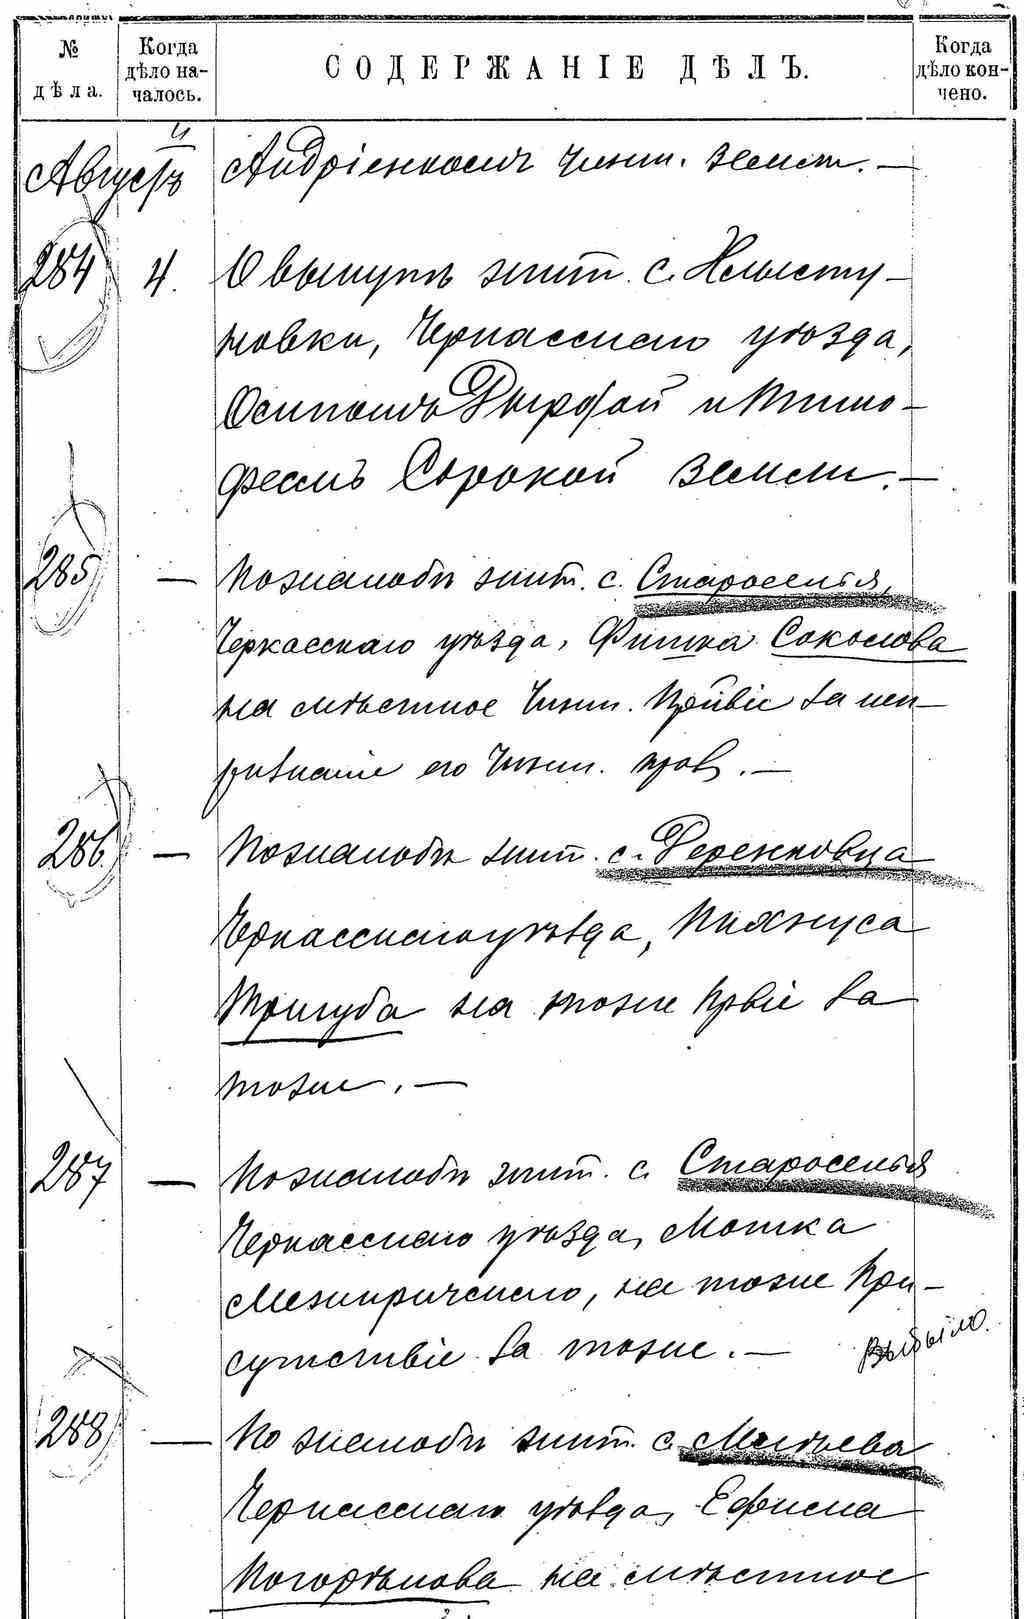 № дѣла.
Когда дѣло на-чалось.
СОДЕРЖАНІЕ ДѢЛЪ.
Когда дѣло кон-чено.
Августъ
Андріенкомъ чинш. земли. —
284 4. О выкупѣ жит. с.
новки, Черкасскаго уѣзда,
Осипомъ и Тимо-
феемъ Сорокой земли. —
285 — По жалобѣ жит. с. Староселья,
Черкасскаго уѣзда, Соколова
на мѣстное Чинш. за неп-
ризнаніе его Чинш. прав. —
286 — По жалобѣ жит. с. Деренковца
Черкасскаго уѣзда, Пинхуса
Тригуба на тоже за
тоже. —
287 — По жалобѣ жит. с. Староселья
Черкасскаго уѣзда, Мошка
Межиричскаго, на тоже При-
сутствіе за тоже. —
Выбыло.
288 — По жалобѣ жит. с. Млѣева
Черкасскаго уѣзда,
Погорѣлова на мѣстное